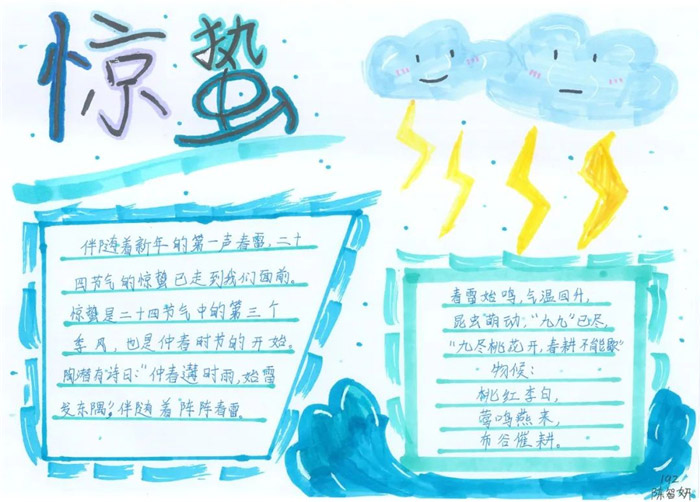 惊蛰
伴随着新年的第一声春雷,二十
四节气的惊蛰已走到我们面前。
惊蛰是二十四节气中的第三个
季风,也是仲春时节的开始。
陶潜有诗曰:“仲春遘时雨,始雷
发东隅”,伴随着“阵阵春雷。
春雷始鸣,气温回升,
昆虫“萌动,“九九”已尽,
“九尽桃花开,春耕不能歇”
物候:
桃红李白,
莺鸣燕来,
布谷催耕。
192
陈智妍